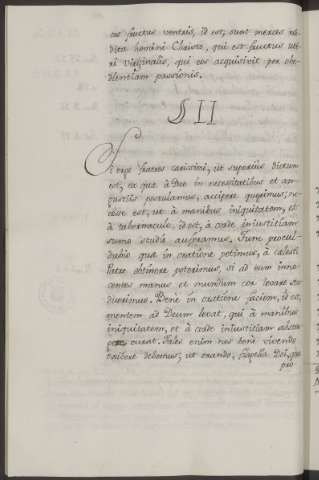 ces fructus ventris, id est, sunt merces re
dita homini Christo, qui est fructus ute
ri virginalis, qui eos acquisivit per obe
dientiam passionis.
§ II
Si ergo fratres carissimi, ut superius dictum
est, ea quæ à Deo in necessitatibus et an
gustiis postulamus, accipere quærimus; ne
cesse est, ut à manibus iniquitatem, et
à tabernaculo, id est, à corde iniustitiam
summo studio auferamus. Tunc procul
dubio quæ in oratione petimus, à cælesti
Patre obtinere poterimus, si ad eum inno
centes manus et mundum cor levare stu
duerimus. Bene in oratione faciem, id est,
mentem ad Deum levat, qui à manibus
iniquitatem, et à corde iniustitiam abster
gere curat. Tales enim nos bene vivendo
exibere debemus; ut orando,